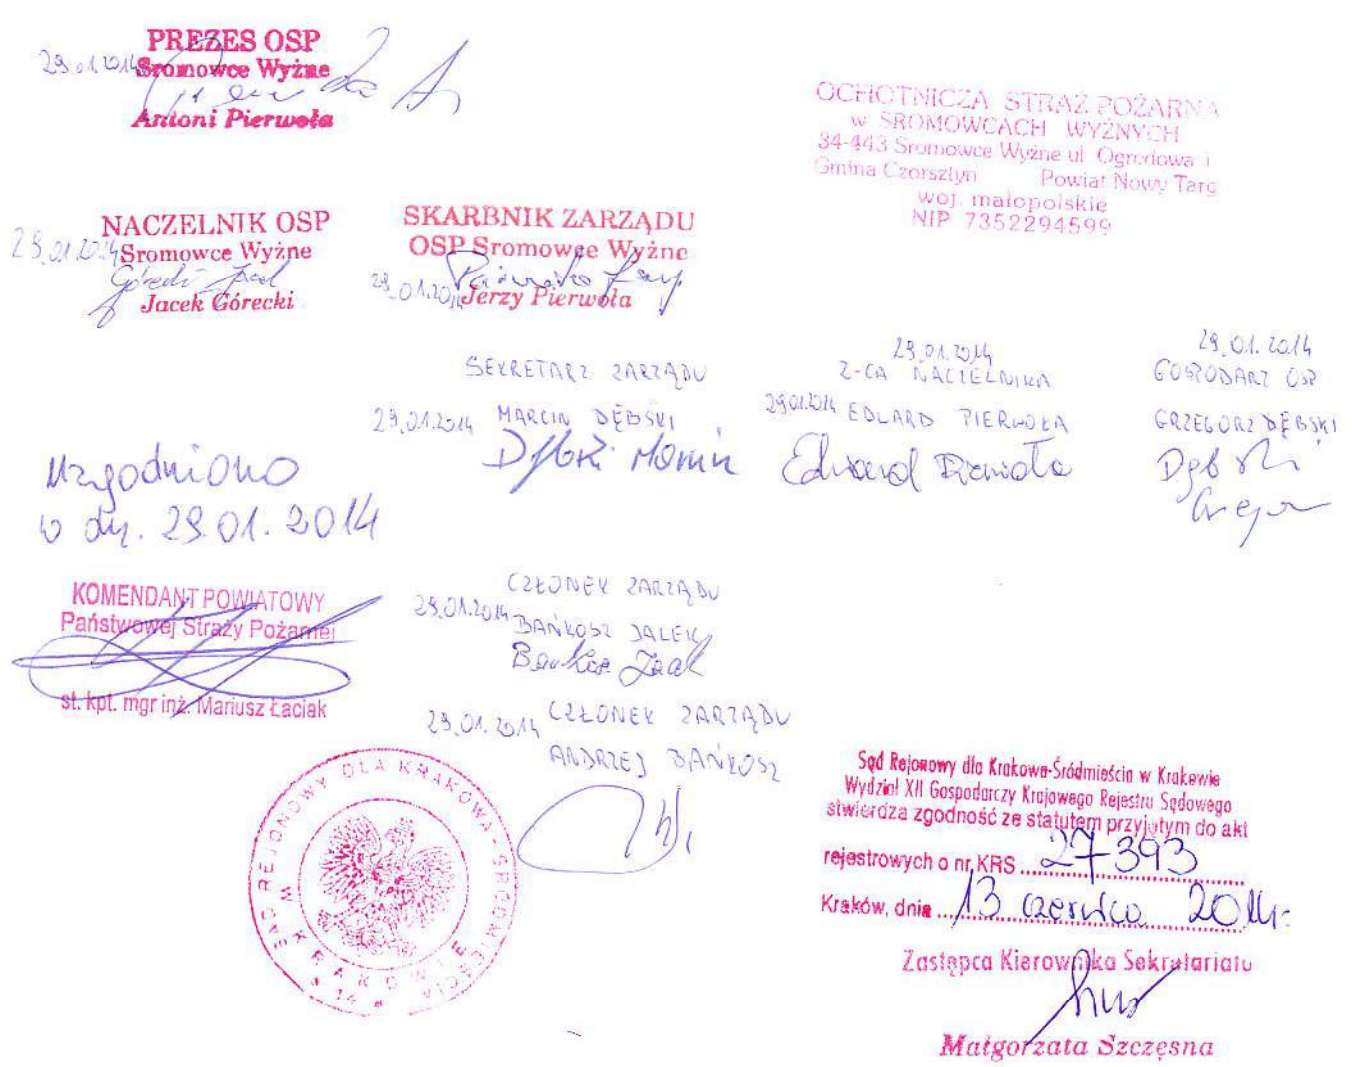 29.01.2014
PREZES OSP
Sromowce Wyżne
Antoni Pierwoła
OCHOTNICZA STRAŻ POŻARNA
w SROMOWCACH WYŻNYCH
34-443 Sromowce Wyżne ul. Ogrodowa 1
Gmina Czorsztyn Powiat Nowy Targ
woj. małopolskie
NIP 7352294599
NACZELNIK OSP
29.01.2014 Sromowce Wyżne
Górecki Jacek
Jacek Górecki
SKARBNIK ZARZĄDU
OSP Sromowce Wyżne
29.01.2014 Jerzy Pierwoła
SEKRETARZ ZARZĄDU
29.01.2014 MARCIN DĘBSKI
Dębski Marcin
29.01.2014
Z-CA NACZELNIKA
29.01.2014 EDWARD PIERWOŁA
Edward Pierwoła
29.01.2014
GOSPODARZ OSP
GRZEGORZ DĘBSKI
Dębski
Uzgodniono
w dn. 29.01.2014
KOMENDANT POWIATOWY
Państwowej Straży Pożarnej
st. kpt. mgr inż. Mariusz Łaciak
CZŁONEK ZARZĄDU
29.01.2014 BAŃKOSZ JACEK
Bańkosz Jacek
29.01.2014 CZŁONEK ZARZĄDU
ANDRZEJ BAŃKOSZ
SĄD REJONOWY DLA KRAKOWA-ŚRÓDMIEŚCIA
W KRAKOWIE
14
Sąd Rejonowy dla Krakowa-Śródmieścia w Krakowie
Wydział XII Gospodarczy Krajowego Rejestru Sądowego
stwierdza zgodność ze statutem przyjętym do akt
rejestrowych o nr KRS 27393
Kraków, dnia 13 czerwca 2014r.
Zastępca Kierownika Sekretariatu
Małgorzata Szczęsna